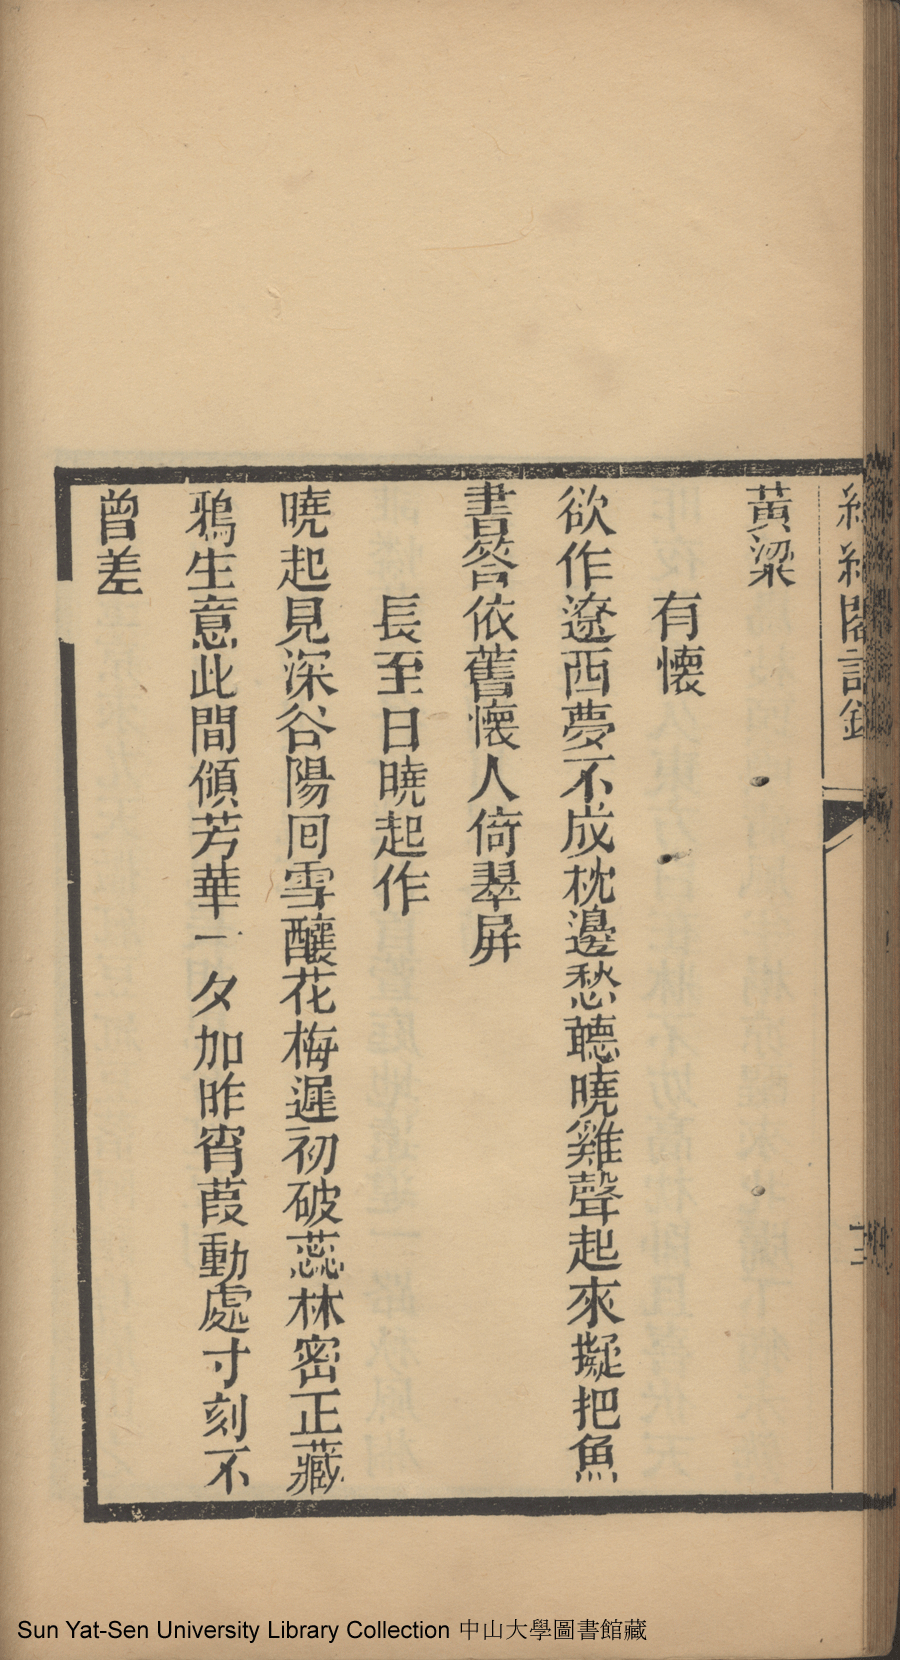 閣詩鈔
黃梁
有懷
欲作遼西夢不成枕邊愁聽曉雞聲起來擬把魚
書畣依舊懷人倚翠屏
長至日曉起作
曉起見深谷陽囘雪釀花梅遲初破蕊林密正藏
鴉生意此間傾芳華一夕加昨宵葭動處寸刻不
曾差
Sun Yat-Sen University Library Collection 中山大學圖書館藏